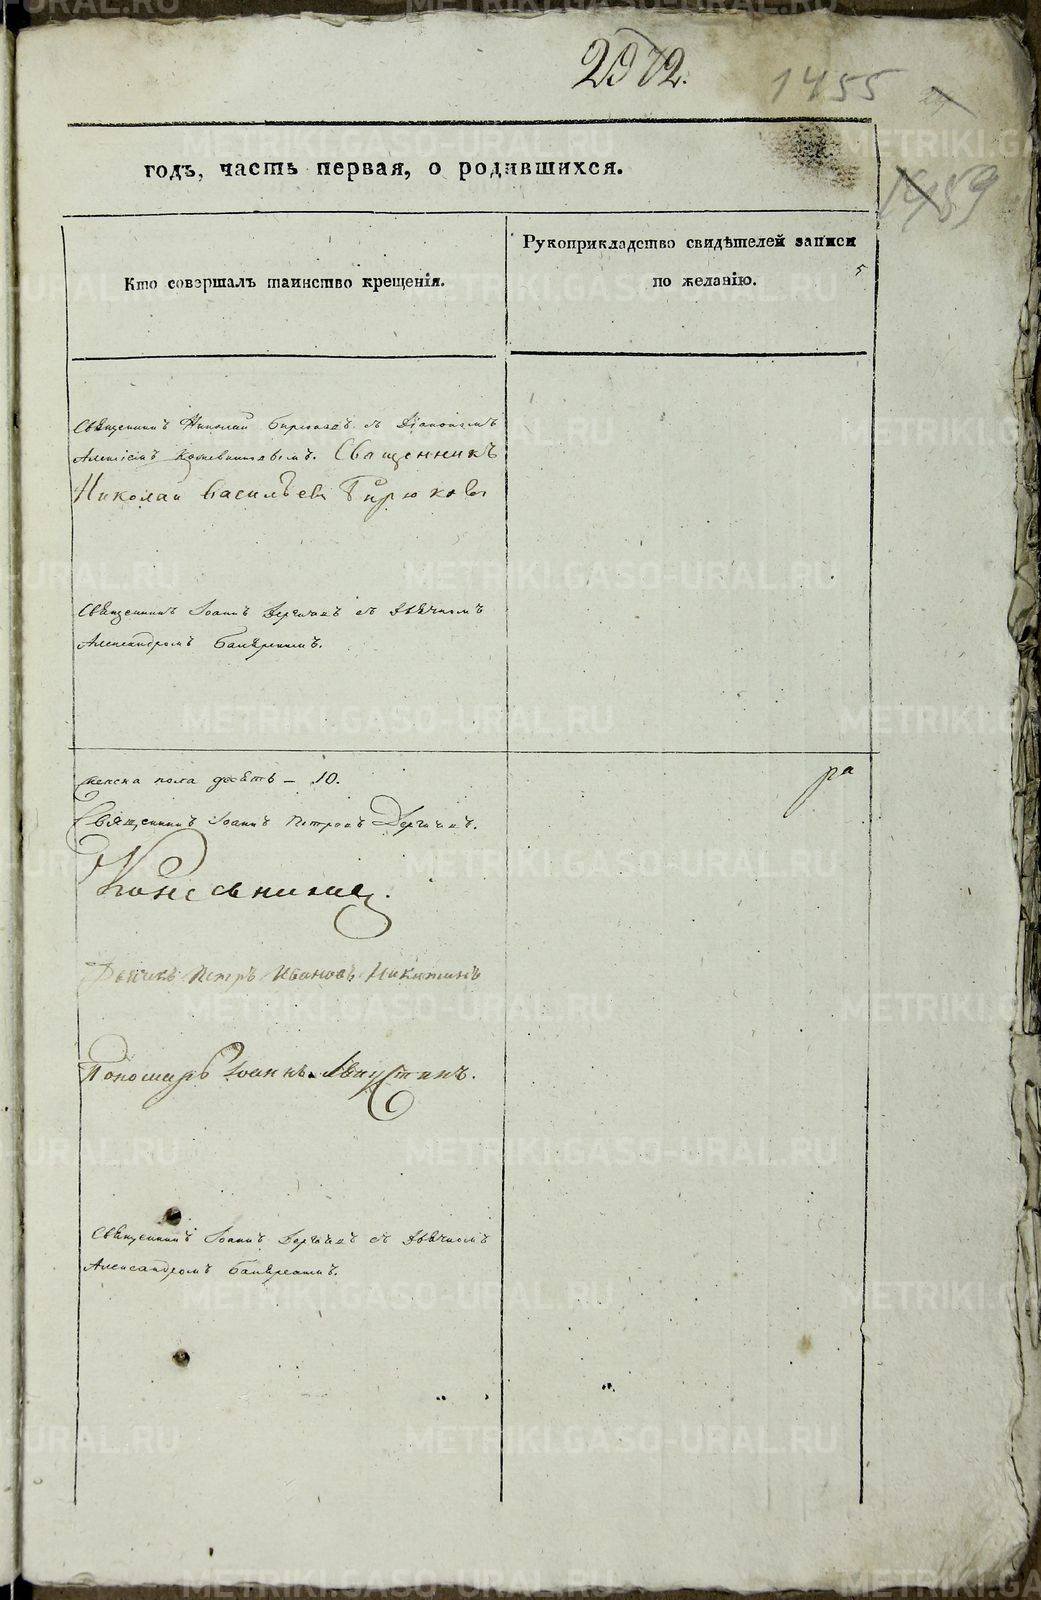 2972.
1455
1459
годъ, часть первая, о родившихся.
Кто совершалъ таинство крещенія.
Рукоприкладство свидѣтелей записи
по желанію.
5
Священникъ Николай Бирюковъ съ Діакономъ
Алексіемъ Кожевниковымъ. Священникъ
Николай Васильевъ Бирюковъ
Священникъ Іоаннъ Дерягинъ съ Дьячкомъ
Александромъ
женска пола десять – 10.
ра
Священникъ Іоаннъ Петровъ Дерягинъ.
Дьячекъ Петръ Ивановъ Никитинъ
Пономарь Іоаннъ
Священникъ Іоаннъ Дерягинъ съ Дьячкомъ
Александромъ
METRIKI.GASO-URAL.RU